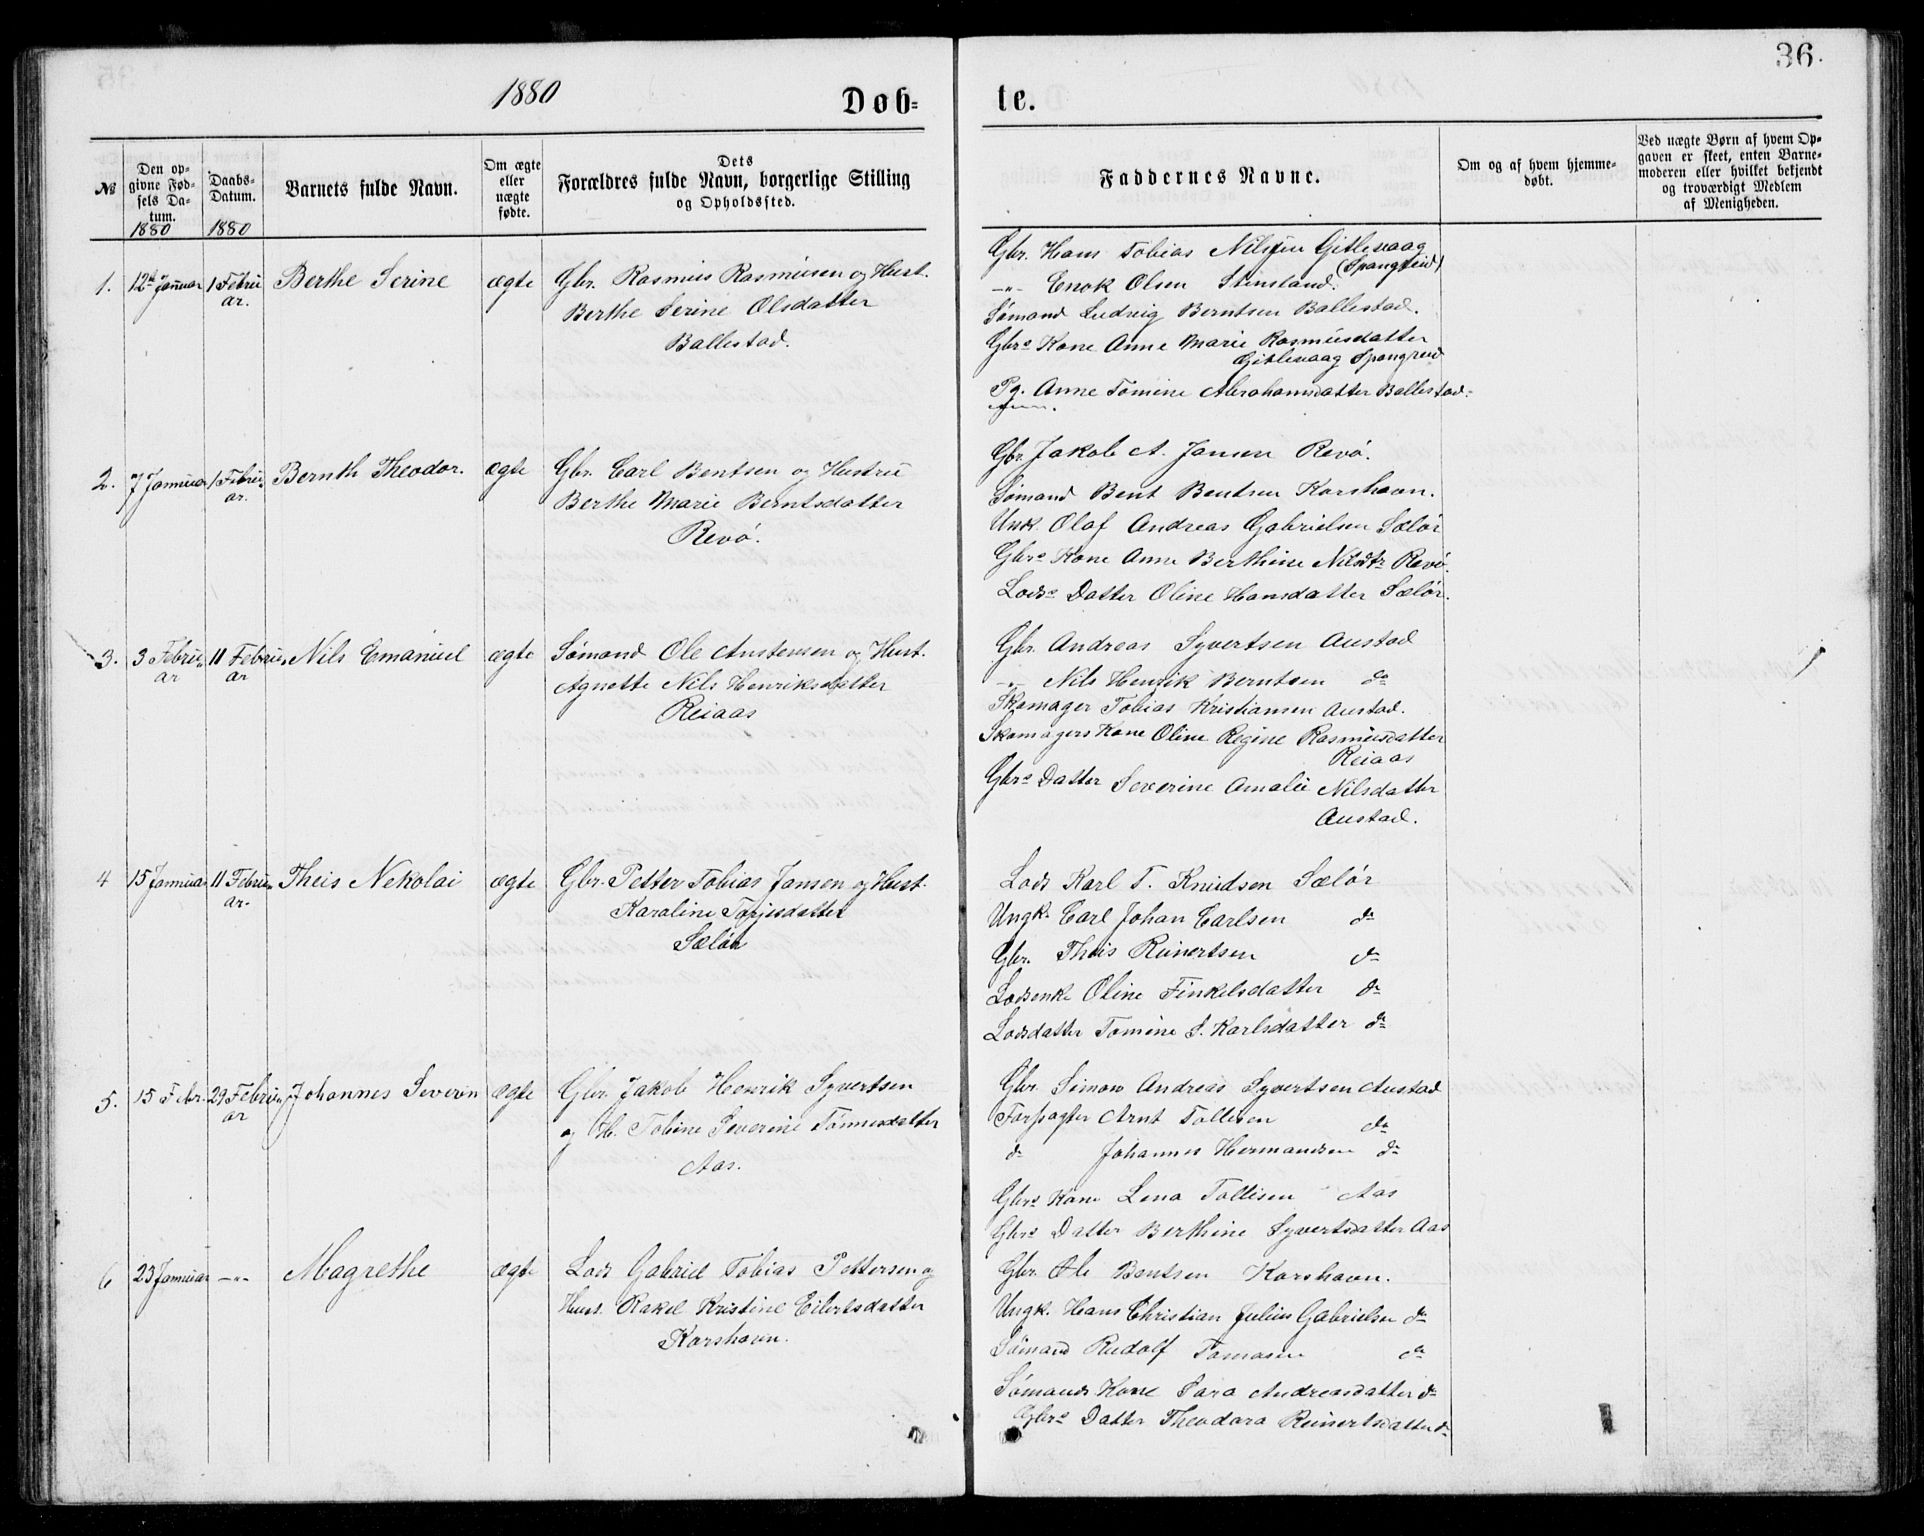 1880
Døb=
te.
36.
№
Den op-
givne Fød-
sels Da-
tum.
1880
Daabs-
Datum.
1880
Barnets fulde Navn.
Om ægte
eller
uægte
fødte.
Dets
Forældres fulde Navn, borgerlige Stilling
og Opholdssted.
Faddernes Navne.
Om og af hvem hjemme-
døbt.
Ved uægte Børn af hvem Op-
gaven er skeet, enten Barne-
moderen eller hvilket bekjendt
og troværdigt Medlem
af Menigheden.
1. 12te Januar 1 Febru
ar.
Berthe Serine
ægte
Gbr. Rasmus Rasmusen og Hust.
Berthe Serine Olsdatter
Ballestad.
Gbr. Hans Tobias Nilsen Gitlevaag
(Spangreid)
-"- Enok Olsen Stensland.
Sømand Ludvig Berntsen Ballestad.
Gbrs Kone Anne Marie Rasmusdatter
Gitlevaag Spangreid
Pg. Anne Tomine Abrahamsdatter Ballestad.
2. 7 Januar 1 Febru
ar.
Bernth Theodor.
ægte
Gbr. Carl Bentsen og Hustru
Berthe Marie Berntsdatter
Revø.
Gbr. Jakob A. Jansen Revø.
Sømand Bent Bentsen Korshavn.
Unk. Olaf Andreas Gabrielsen Sælør
Gbrs Kone Anne Berthine Nilsdtr Revø.
Lods Datter Oline Hansdatter Sælør.
3. 3 Febru
ar
11 Febru
ar
Nils Emanuel
ægte
Sømand Ole Austensen og Hust.
Agnette Nils Henriksdatter
Reiaas
Gbr. Andreas Syvertsen Austad
-"- Nils Henrik Berntsen do
Skomager Tobias Kristiansen Austad.
Skomagers Kone Oline Regine Rasmusdatter
Reiaas
Gbrs Datter Severine Amalie Nilsdatter
Austad.
4 15 Januar 11 Febru
ar.
Theis Nekolai
ægte
Gbr. Petter Tobias Jansen og Hust.
Karaline Tarjesdatter
Sælør
Lods Karl T. Knudsen Sælør
Ungk. Carl Johan Carlsen do
Gbr. Theis Reinertsen do
Lodsenke Oline Finkelsdatter do
Lodsdatter Tomine S. Karlsdatter do
5. 15 Febr. 29 Febru
ar
Johannes Severin
ægte
Gbr. Jakob Henrik Syvertsen
og H. Tobine Severine Tønnesdatter
Aas.
Gbr. Simon Andreas Syvertsen Austad
Forpagter Arnt Tollesen do
do Johannes Hermandsen do
Gbrs Kone Lena Tollisen Aas
Gbrs Datter Berthine Syvertsdatter Aas
6 23 Januar -"-
Magrethe
ægte
Lods Gabriel Tobias Pettersen og
Hust. Rakel Kristine Eilertsdatter
Korshavn.
Gbr. Ole Bentsen Korshavn.
Ungk. Hans Christian Julius Gabrielsen do
Sømand Rudolf Tomasen do
Sømands Kone Sara Andreasdatter do
Gbrs Datter Theodora Reinertsdatter do